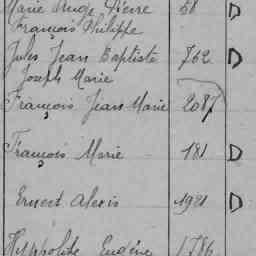 Marie Ange Pierre 58 D
François Philippe
Jules Jean Baptiste 762 D
Joseph Marie
François Jean Marie 2087
François Marie 181 D
Ernest Alexis 1921 D
Hyppolite Eugène 1786